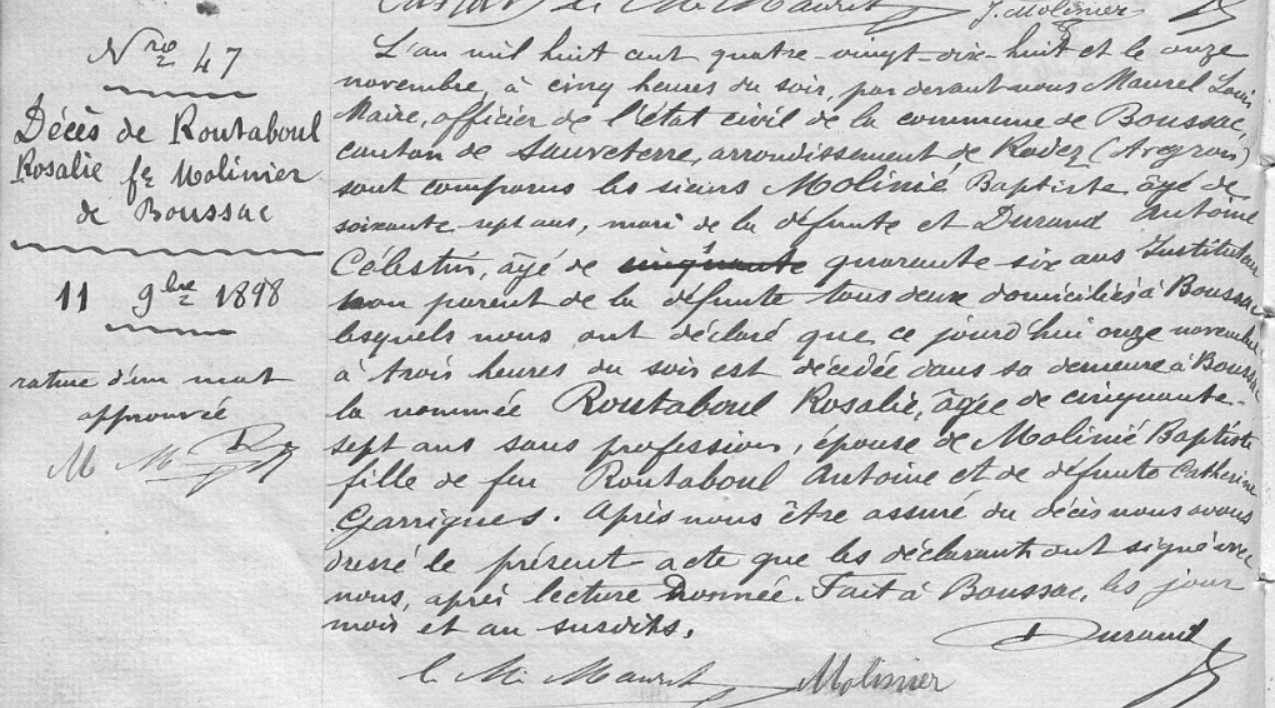 J. Molinier
Nro 47
Décès de Routaboul
Rosalie fe Molinier
de Boussac
11 9bre 1898
rature d'un mot
approuvée
L'an mil huit cent quatre-vingt-dix-huit et le onze
novembre, à cinq heures du soir, par devant nous Maurel Louis
Maire, officier de l'état civil de la commune de Boussac,
canton de Sauveterre, arrondissement de Rodez (Aveyron)
sont comparus les sieurs Molinié Baptiste âgé de
soixante sept ans, mari de la défunte et Durand Antoine
Célestin, âgé de cinquante quarante six ans Instituteur
non parent de la défunte tous deux domiciliés à Boussac
lesquels nous ont déclaré que ce jourd'hui onze novembre
à trois heures du soir est décédée dans sa demeure à Boussac
la nommée Routaboul Rosalie, âgée de cinquante-
sept ans sans profession, épouse de Molinié Baptiste
fille de feu Routaboul Antoine et de défunte Catherine
Garrigues. Après nous être assuré du décès nous avons
dressé le présent acte que les déclarants ont signé avec
nous, après lecture donnée. Fait à Boussac, les jour
mois et an susdits.
Durand
le Mre Maurel Molinier